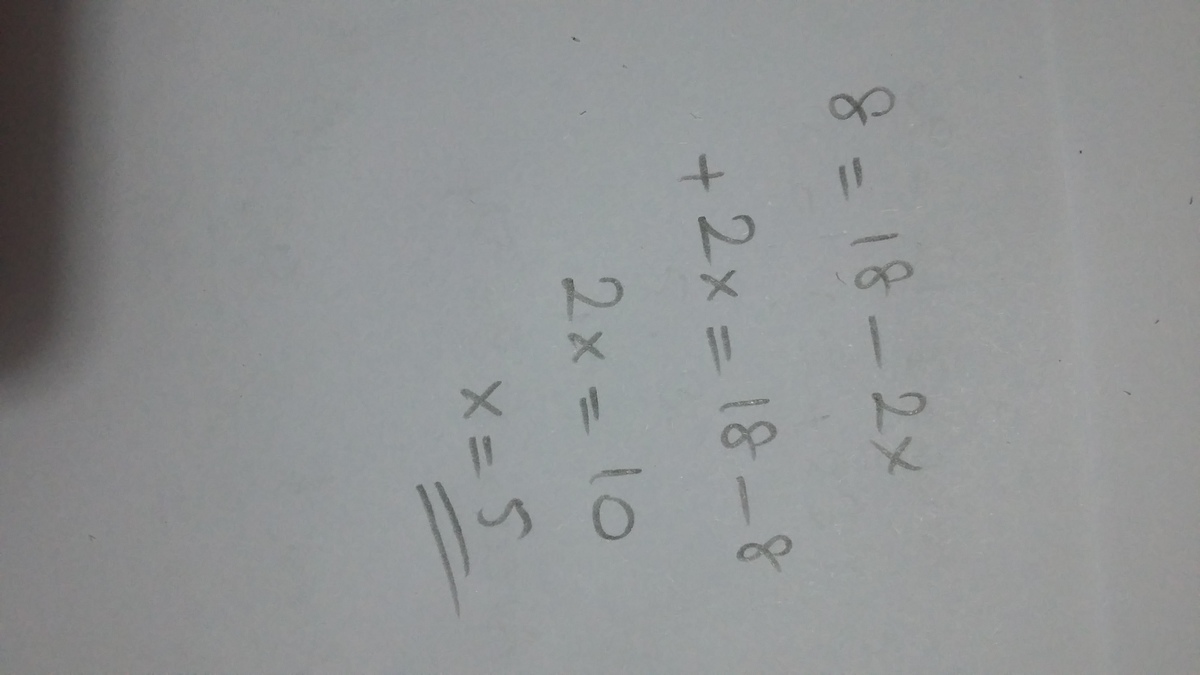 8 = 18 - 2x
+ 2x = 18 - 8
2x = 10
x = 5